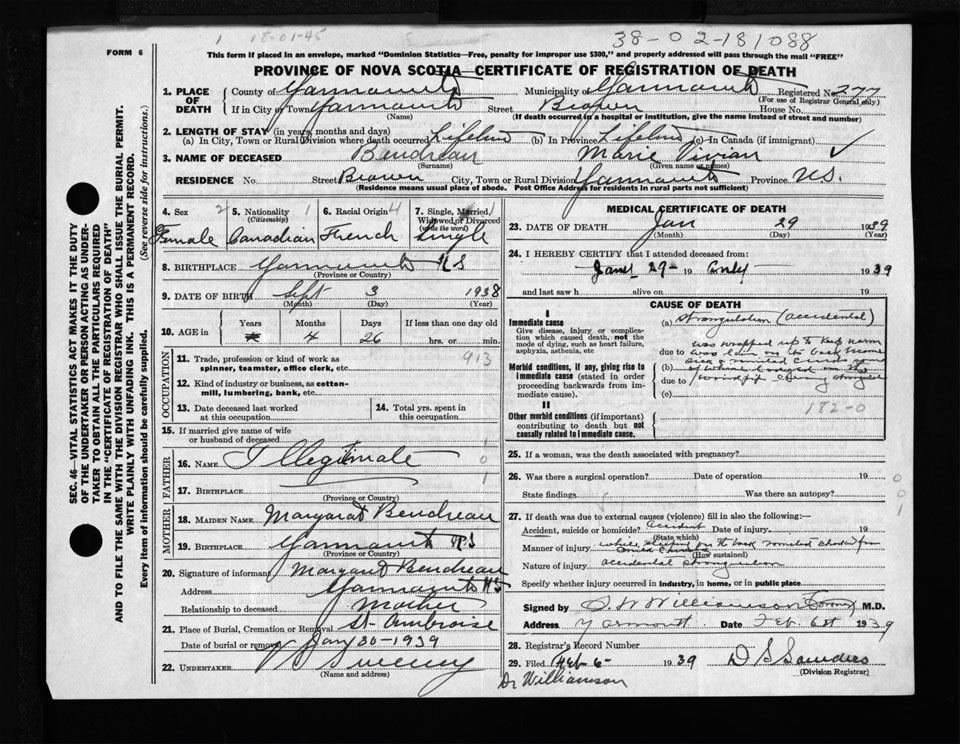 18-01-45
38-02-181088
FORM 6
This form if placed in an envelope, marked "Dominion Statistics—Free, penalty for improper use $300," and properly addressed will pass through the mail "FREE"
PROVINCE OF NOVA SCOTIA—CERTIFICATE OF REGISTRATION OF DEATH
1. PLACE OF DEATH
County of Yarmouth Municipality of Yarmouth Registered No. 277
(For use of Registrar General only)
If in City or Town Yarmouth Street Brown House No.
(Name) (If death occurred in a hospital or institution, give the name instead of street and number)
2. LENGTH OF STAY (in years, months and days)
(a) In City, Town or Rural Division where death occurred Lifetime (b) In Province Lifetime (c) In Canada (if immigrant)
3. NAME OF DECEASED Beudreau Marie Vivian
(Surname) (Given name or names)
RESIDENCE No. Street Brown City, Town or Rural Division Yarmouth Province N.S.
(Residence means usual place of abode. Post Office Address for residents in rural parts not sufficient)
4. Sex Female
5. Nationality (Citizenship) Canadian
6. Racial Origin French
7. Single, Married, Widowed or Divorced (write the word) Single
8. BIRTHPLACE Yarmouth N S
(Province or Country)
9. DATE OF BIRTH Sept 3 1938
(Month) (Day) (Year)
10. AGE in Years Months Days If less than one day old
4 26 hrs. or min.
913
OCCUPATION
11. Trade, profession or kind of work as spinner, teamster, office clerk, etc.
12. Kind of industry or business, as cotton-mill, lumbering, bank, etc.
13. Date deceased last worked at this occupation
14. Total yrs. spent in this occupation
15. If married give name of wife or husband of deceased
FATHER
16. NAME Illegitimate
17. BIRTHPLACE
(Province or Country)
MOTHER
18. MAIDEN NAME Margaret Beudreau
19. BIRTHPLACE Yarmouth N S
(Province or Country)
20. Signature of informant Margaret Beudreau
Address Yarmouth N S
Relationship to deceased Mother
21. Place of Burial, Cremation or Removal St Ambroise
Date of burial or removal Jany 30-1939
22. UNDERTAKER V Sweeney
(Name and address)
MEDICAL CERTIFICATE OF DEATH
23. DATE OF DEATH Jan 29 1939
(Month) (Day) (Year)
24. I HEREBY CERTIFY that I attended deceased from:
Jany 29- 19 only 1939
and last saw h alive on 19
CAUSE OF DEATH
I
Immediate cause
Give disease, injury or complication which caused death, not the mode of dying, such as heart failure, asphyxia, asthenia, etc
(a) Strangulation (accidental)
was wrapped up to keep warm
due to
Morbid conditions, if any, giving rise to immediate cause (stated in order proceeding backwards from immediate cause).
(b)
due to
(c)
182-0
II
Other morbid conditions (if important) contributing to death but not causally related to immediate cause.
25. If a woman, was the death associated with pregnancy?
26. Was there a surgical operation? Date of operation 19
State findings Was there an autopsy?
27. If death was due to external causes (violence) fill in also the following:—
Accident, suicide or homicide? Accident Date of injury 19
(State which)
Manner of injury while sleeping on its back vomited choked from
(How sustained)
Nature of injury accidental strangulation
Specify whether injury occurred in industry, in home, or in public place
Signed by Williamson M.D.
Address Yarmouth Date Feb 6st 1939
28. Registrar's Record Number
29. Filed Feb 6- 1939 D S Saunders
(Division Registrar)
Dr Williamson
SEC. 46—VITAL STATISTICS ACT MAKES IT THE DUTY OF THE UNDERTAKER OR PERSON ACTING AS UNDERTAKER TO OBTAIN ALL THE PARTICULARS REQUIRED IN THE "CERTIFICATE OF REGISTRATION OF DEATH" AND TO FILE THE SAME WITH THE DIVISION REGISTRAR WHO SHALL ISSUE THE BURIAL PERMIT.
WRITE PLAINLY WITH UNFADING INK. THIS IS A PERMANENT RECORD.
Every item of information should be carefully supplied. (See reverse side for instructions.)